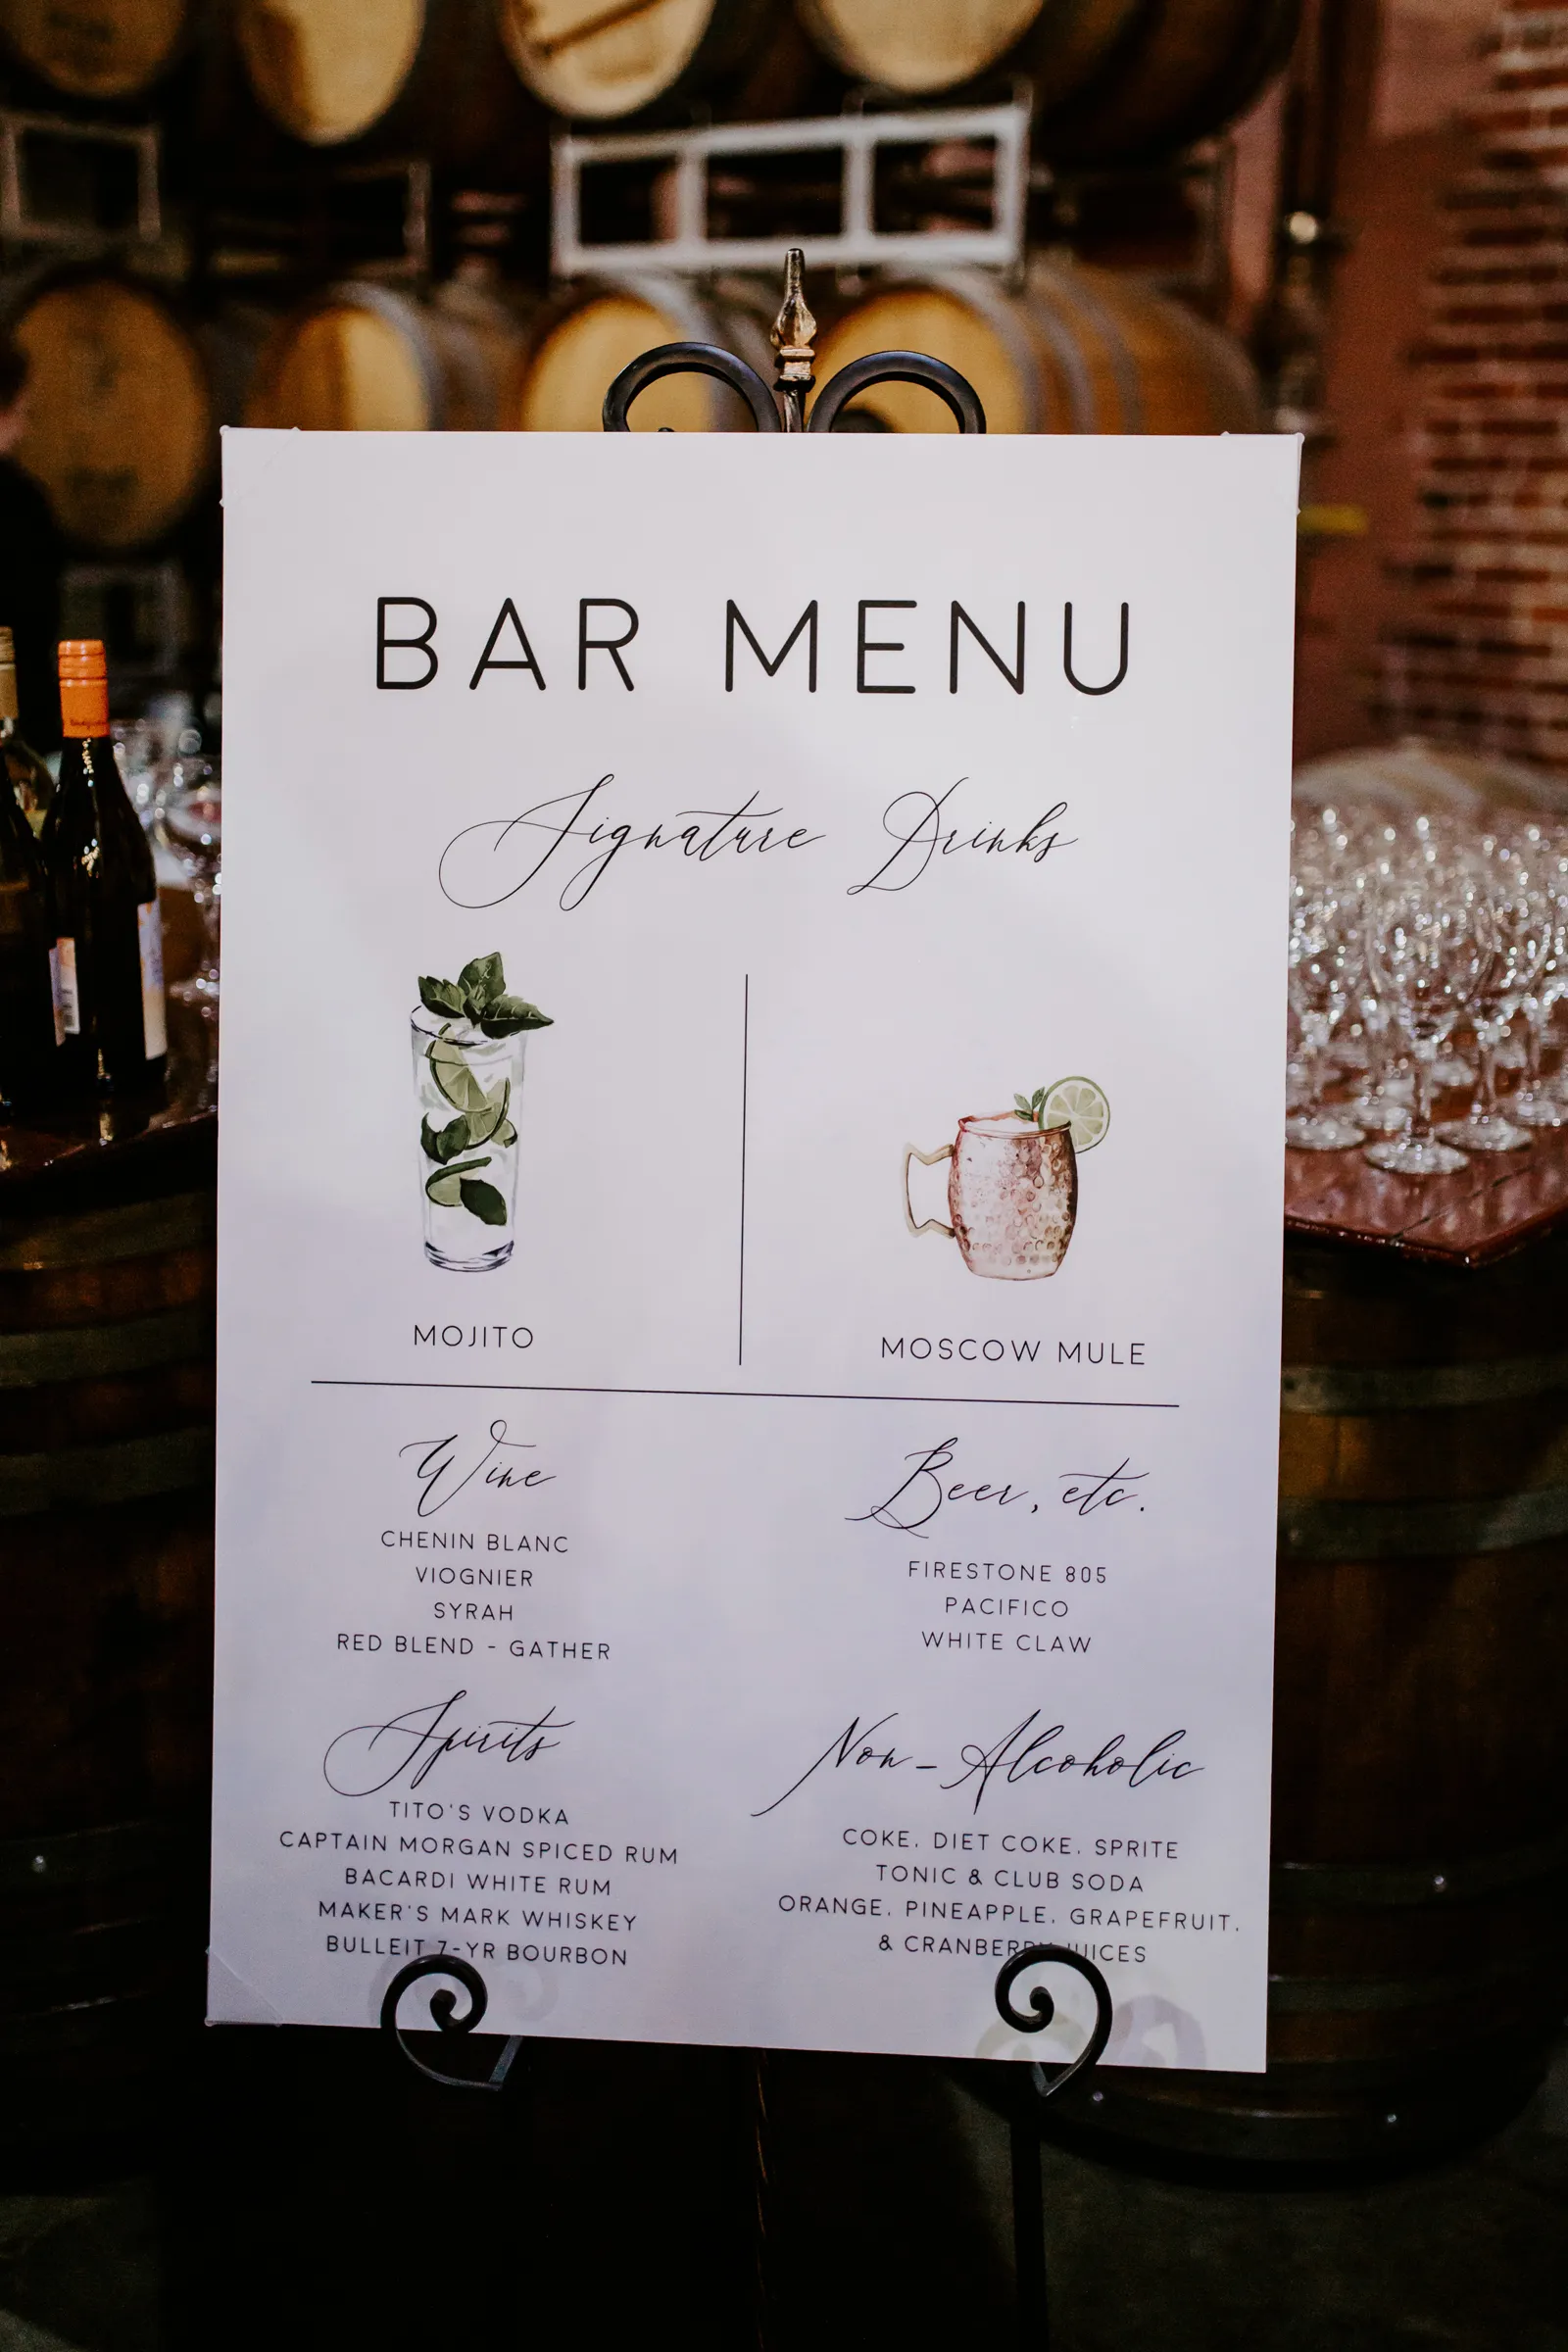 BAR MENU
Signature Drinks
MOJITO
MOSCOW MULE
Wine
CHENIN BLANC
VIOGNIER
SYRAH
RED BLEND - GATHER
Beer, etc.
FIRESTONE 805
PACIFICO
WHITE CLAW
Spirits
TITO'S VODKA
CAPTAIN MORGAN SPICED RUM
BACARDI WHITE RUM
MAKER'S MARK WHISKEY
BULLEIT 7-YR BOURBON
Non-Alcoholic
COKE, DIET COKE, SPRITE
TONIC & CLUB SODA
ORANGE, PINEAPPLE, GRAPEFRUIT,
& CRANBERRY JUICES